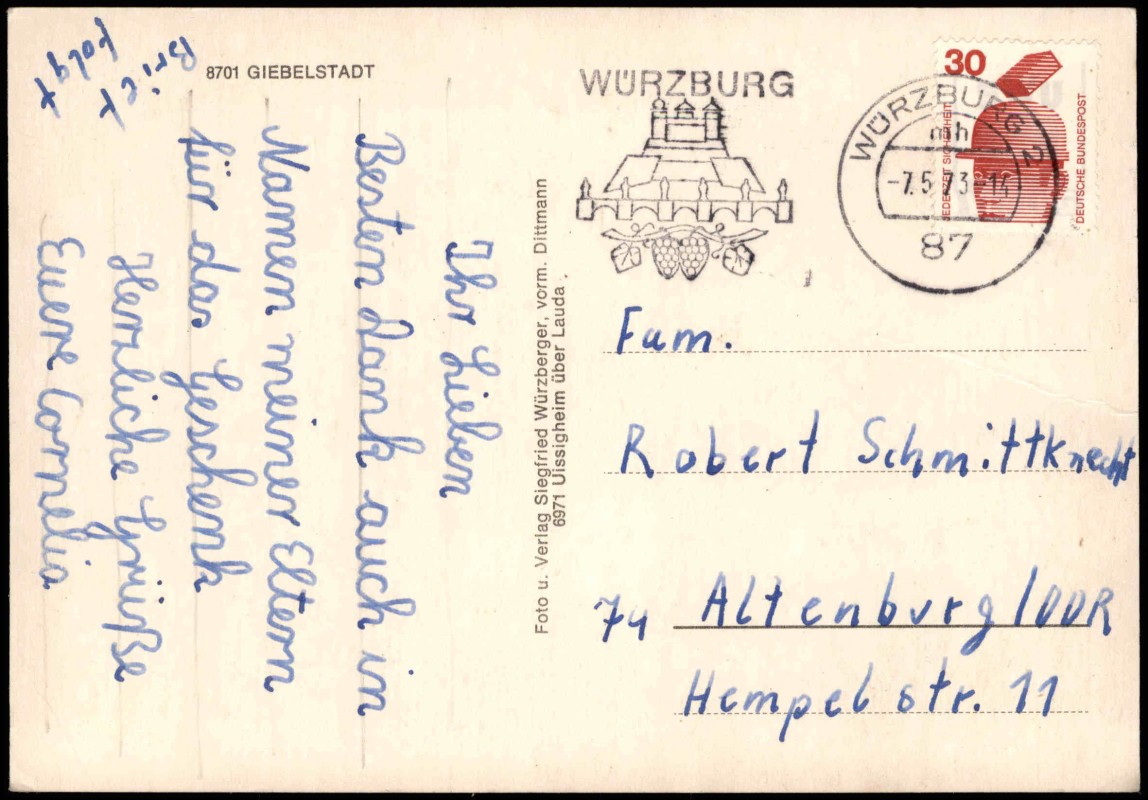 8701 GIEBELSTADT
Ihr Lieben
Besten Dank auch im
Namen meiner Eltern
für das Geschenk
Herzliche Grüße
Euere Cornelia
x Brief
folgt x
Foto u. Verlag Siegfried Würzberger, vorm. Dittmann
6971 Uissigheim über Lauda
WÜRZBURG
30
JEDERZEIT SICHERHEIT
DEUTSCHE BUNDESPOST
WÜRZBURG 2
mh
-7.5.73-14
87
Fam.
Robert Schmittknecht
74 Altenburg/DDR
Hempelstr. 11